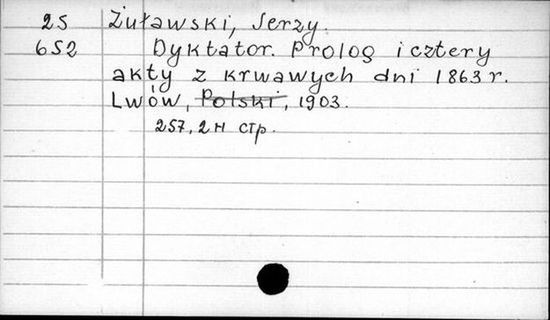 25 Żuławski, Jerzy.
652 Dyktator. Prolog i cztery
akty z krwawych dni 1863 r.
Lwów, Polski, 1903.
257, 2 н стр.